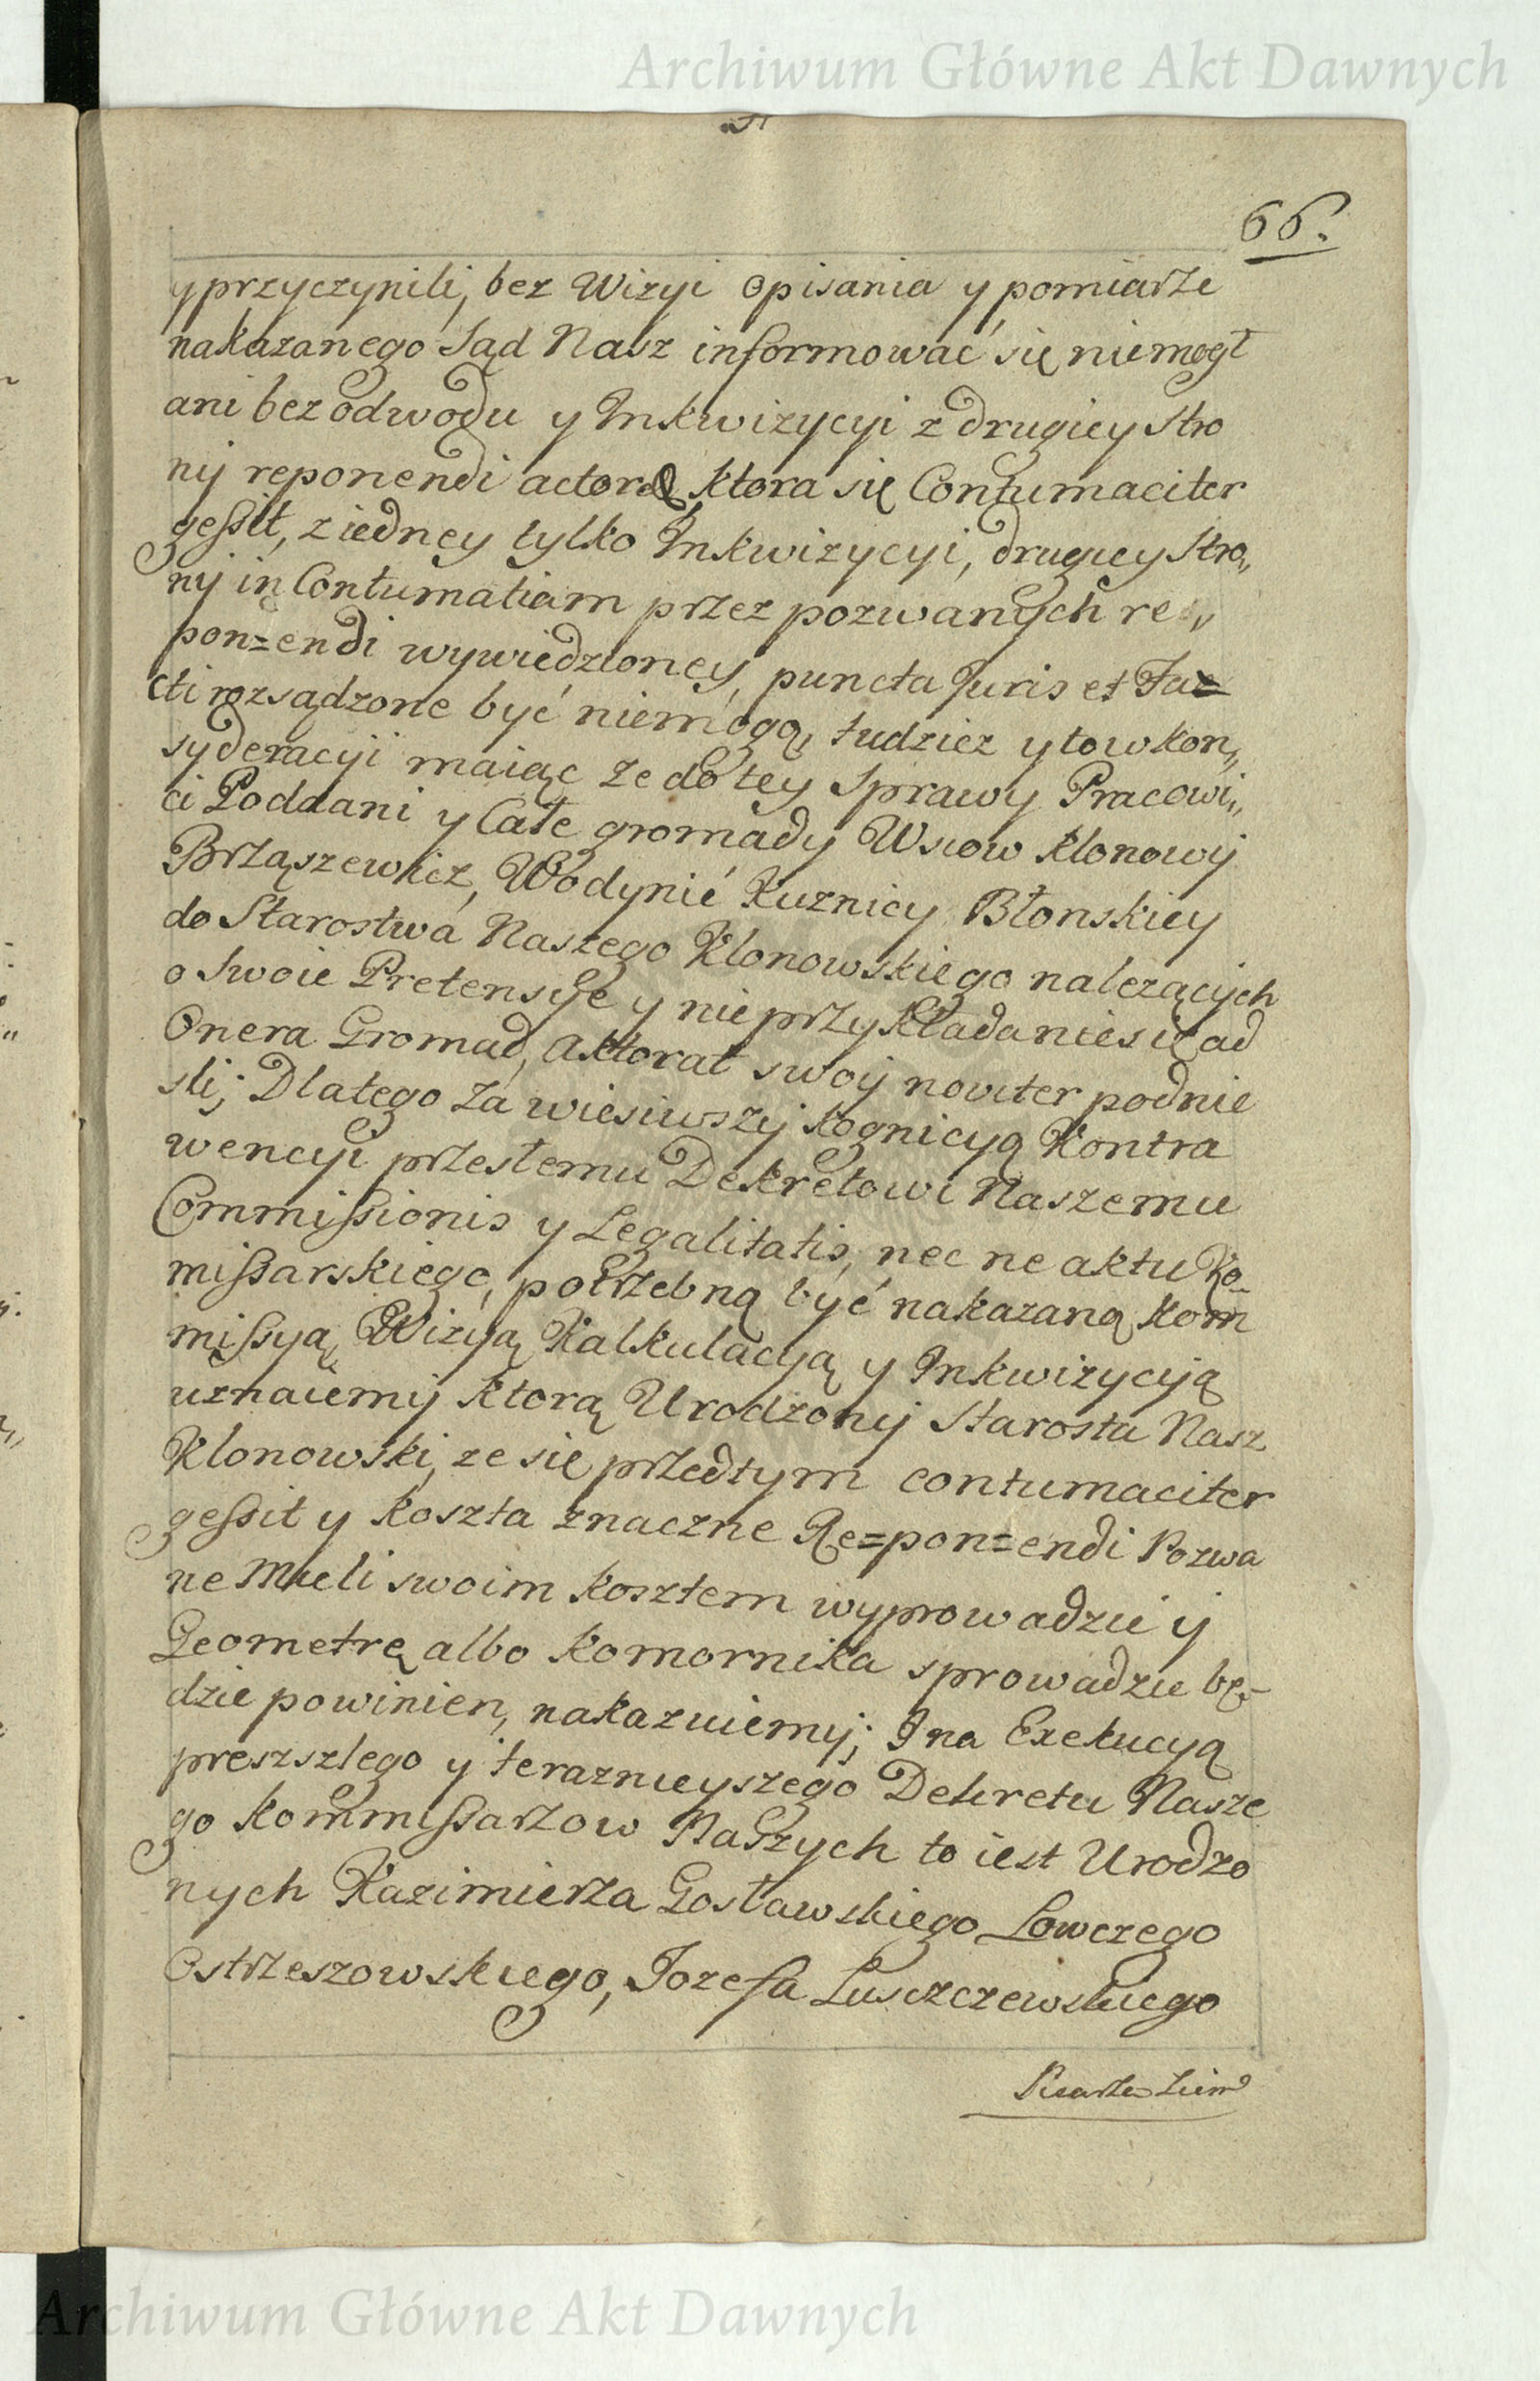 Archiwum Główne Akt Dawnych
66.
y przyczynili, bez Wizyi opisania y pomiarze
nakazanego Sąd Nasz informować się niemogł
ani bez odwodu y Inkwizycyi z drugiey Stro
ny reponendi actorea, ktora się Contumaciter
gessit, z iedney tylko Inkwizycyi, drugiey Stro„
ny in Contumatiam przez pozwanych re„
pon=endi wywiedzioney, puncta Juris et Fa=
cti rozsądzone być niemogą, tudziez y to w kon„
syderacyi maiąc ze do tey Sprawy Pracowi„
ci Poddani y Całe gromady Wsiow Klonowy
Brząszewicz, Wodynié Kuznicy Błonskiey
do Starostwa Naszego Klonowskiego nalezących
o Swoie Pretensye y nie przykładanie się ad
Onera Gromad, Aktorat swoy noviter podnie
sli; Dlatego Zawiesiwszy kognicyą Kontra
wencyi przesłemu Dekretowi Naszemu
Commissionis y Legalitatis, nec ne aktu Ko=
missarskiego, potrzebną być nakazaną Kom
missyą, Wizyą Kalkulacyą y Inkwizycyią
uznaiemy ktorą Urodzony Starosta Nasz
Klonowski, ze się przedtym contumaciter
gessit y koszta znaczne Re=pon=endi Pozwa
ne Mieli swoim kosztem wyprowadzić y
Geometrę albo Komornika sprowadzić bę=
dzie powinien, nakazuiemy; I na Exekucyą
preszszlego y teraznieyszego Dekretu Nasze
go Kommissarzow Naszych to iest Urodzo
nych Kazimierza Gosławskiego Łowczego
Ostrzeszowskiego, Jozefa Luszczewskiego
Pisarza Ziem
Archiwum Główne Akt Dawnych